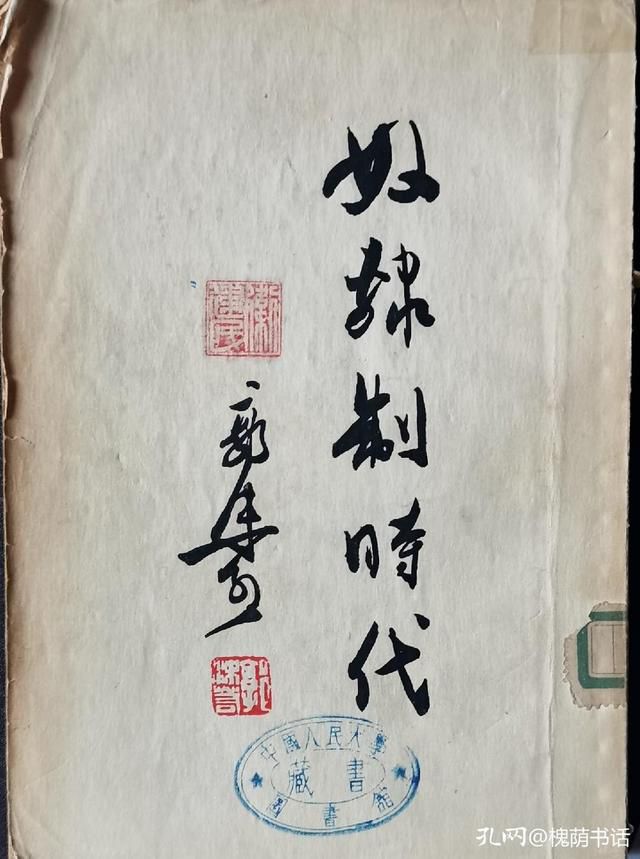 奴隸制時代
衛建民
郭沫若
郭沫若
中國人民大學
藏書
圖書館
孔网@槐荫书话